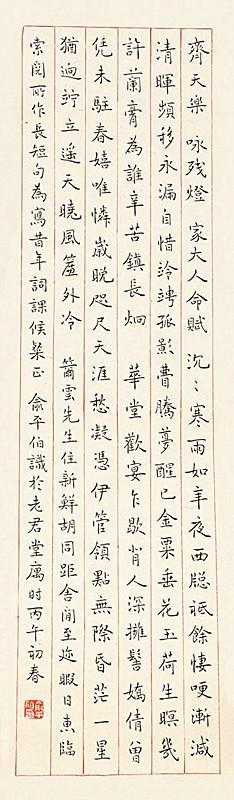 齊天樂 咏殘燈 家大人命賦 沉〻寒雨如年夜西牕祗餘悽哽漸減
清暉頻移永漏自惜竛竮孤影瞢騰夢醒已金粟垂花玉荷生暝幾
許蘭膏為誰辛苦鎮長炯 華堂歡宴乍歇背人深擁髻嬌倩曾
凭未駐春嬉唯憐歲晚咫尺天涯愁凝憑伊管領點無際昏茫一星
猶迥竚立遥天曉風簾外冷 簫雲先生住新鮮胡同距舍閒至近暇日惠臨
索閱所作長短句為寫昔年詞課候槃正 俞平伯識於老君堂寓時丙午初春